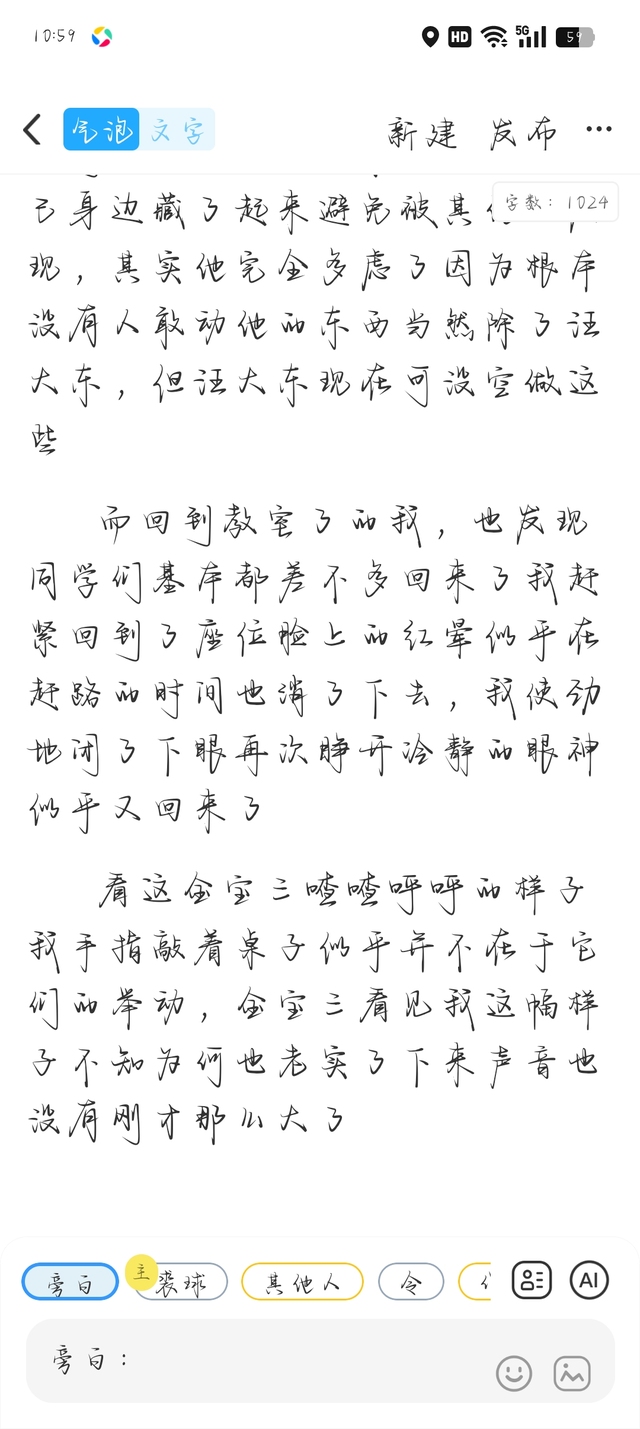 10:59
HD
5G
59
气泡 文字
新建 发布
字数：1024
己身边藏了起来避免被其
现，其实他完全多虑了因为根本
没有人敢动他的东西当然除了汪
大东，但汪大东现在可没空做这
些
而回到教室了的我，也发现
同学们基本都差不多回来了我赶
紧回到了座位脸上的红晕似乎在
赶路的时间也消了下去，我使劲
地闭了下眼再次睁开冷静的眼神
似乎又回来了
看这金宝三喳喳呼呼的样子
我手指敲着桌子似乎并不在于它
们的举动，金宝三看见我这幅样
子不知为何也老实了下来声音也
没有刚才那么大了
旁白
主
裘球
其他人
令
AI
旁白：